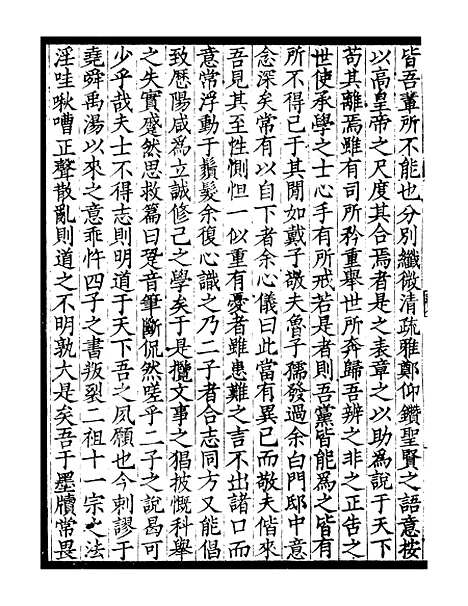 皆吾輩所不能也分別纖微清疏雅鄭仰鑽聖賢之語意按
以高皇帝之尺度其合焉者是之表章之以助為說于天下
苟其離焉雖有司所矜重舉世所奔歸吾辨之非之正告之
世使承學之士心手有所戒若是者則吾黨皆能為之皆有
所不得已于其閒如戴子敬夫魯子孺發過余白門邸中意
念深矣常有以自下者余心儀曰此當有異已而敬夫偕來
吾見其至性惻怛一似重有憂者雖患難之言不出諸口而
意常浮動于鬚髮余復心識之乃二子者合志同方又能使
致歷陽咸為立誠修己之學矣于是攬文事之猖披慨科舉
之失實蹙然思救篇曰爰音筆斷侃然嗟乎二子之說曷可
少乎哉夫士不得志則明道于天下吾之夙願也今刺謬于
堯舜禹湯以來之意乖忤四子之書叛裂二祖十一宗之法
淫哇啾嘈正聲散亂則道之不明孰大是矣吾于墨牘常畏